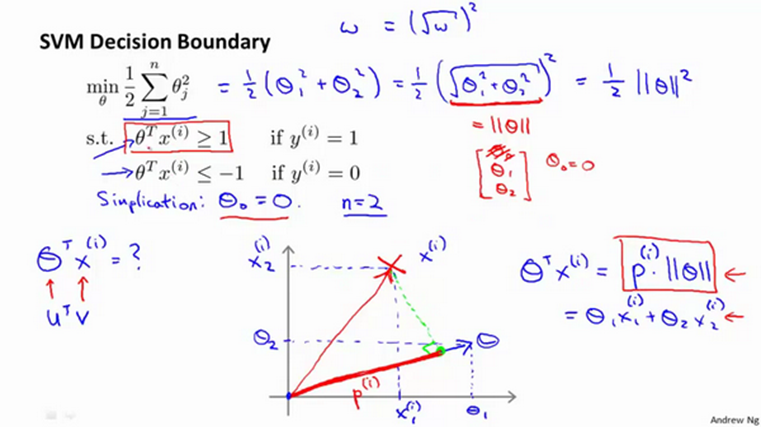 ω = (√ω)²
SVM Decision Boundary
min_θ 1/2 ∑_{j=1}^{n} θ_j² = 1/2 (Θ₁² + Θ₂²) = 1/2 (√(Θ₁² + Θ₂²))² = 1/2 ||Θ||²
= ||Θ||
s.t. θᵀx⁽ⁱ⁾ ≥ 1 if y⁽ⁱ⁾ = 1
θᵀx⁽ⁱ⁾ ≤ −1 if y⁽ⁱ⁾ = 0
[Θ₁ Θ₂] Θ₀ = 0
Simplication: Θ₀ = 0. n=2
Θᵀx⁽ⁱ⁾ = ?
uᵀv
x₂⁽ⁱ⁾
x⁽ⁱ⁾
Θ₂
Θ
p⁽ⁱ⁾
x₁⁽ⁱ⁾
Θ₁
Θᵀx⁽ⁱ⁾ = p⁽ⁱ⁾ · ||Θ|| ←
= Θ₁x₁⁽ⁱ⁾ + Θ₂x₂⁽ⁱ⁾ ←
Andrew Ng